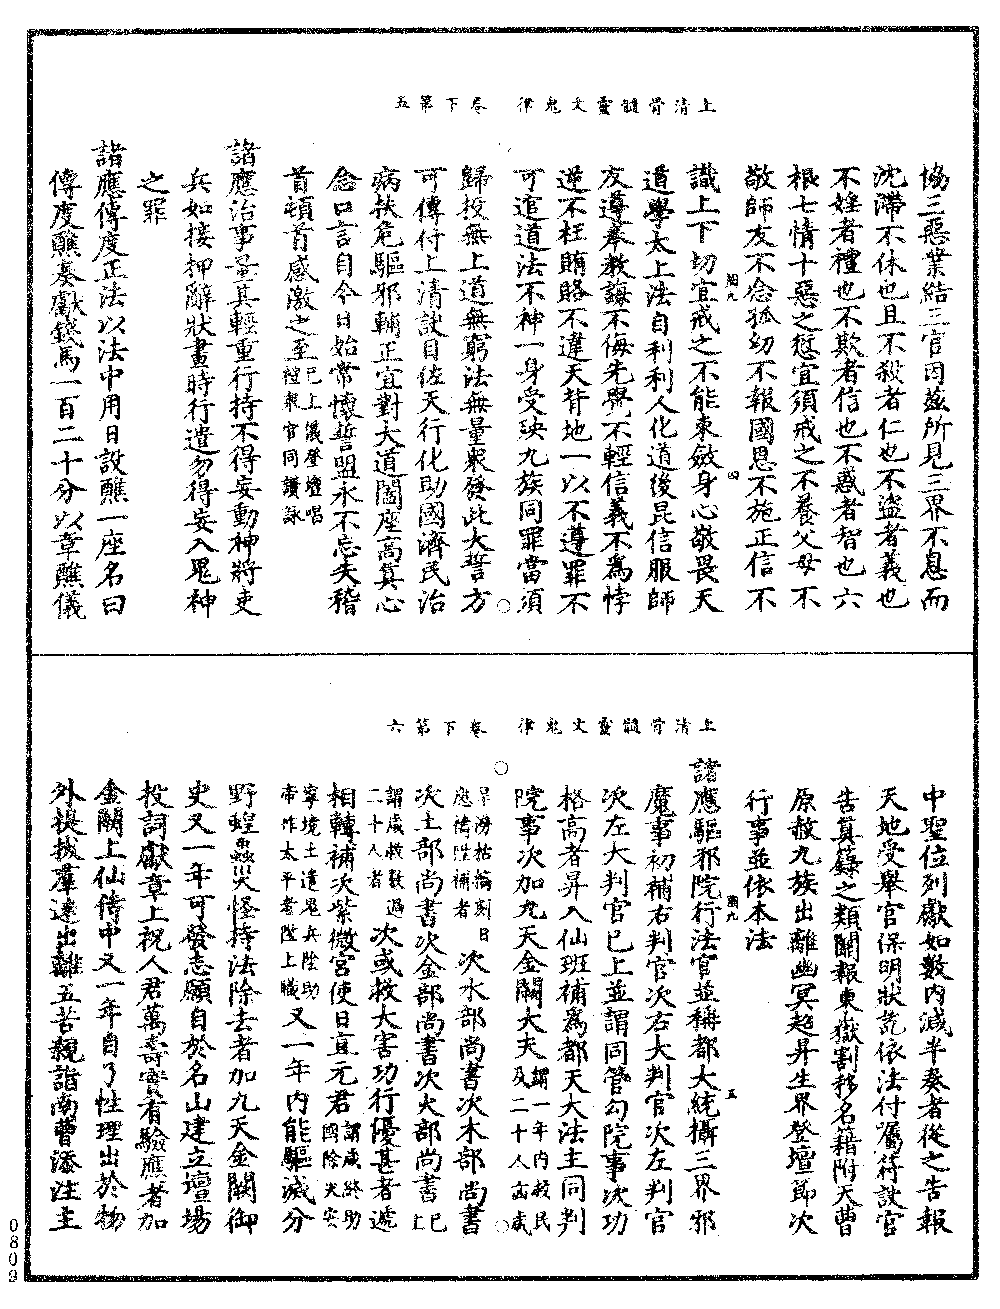 上清骨髓靈文鬼律　卷下第五
協三惡業結三官因茲所見三界不息而
沈滯不休也且不殺者仁也不盜者義也
不婬者禮也不欺者信也不惑者智也六
根七情十惡之愆宜須戒之不養父母不
敬師友不念孤幼不報國恩不施正信不
識上下切宜戒之不能束斂身心敬畏天
道學太上法自利利人化道後昆信服師
友遵奉教誨不侮先覺不輕信義不為悖
逆不枉賄賂不違天背地一以不遵罪不
可逭道法不神一身受殃九族同罪當須
歸投無上道無窮法無量衆發此大誓方
可傳付上清訣目佐天行化助國濟民治
病扶危驅邪輔正宜對大道闔座高真心
念口言自今日始常懷誓盟永不忘失稽
首頓首感激之至已上儀登壇唱
檀報官同讚詠
諸應治事量其輕重行持不得妄動神將吏
兵如接押辭狀畫時行遣勿得妄入鬼神
之罪
諸應傳度正法以法中用日設醮一座名曰
傳度醮奏獻錢馬一百二十分以章醮儀
上清骨髓靈文鬼律　卷下第六
中聖位列獻如數內減半奏者從之告報
天地受舉官保明狀訖依法付囑符訣官
告真籙之類關報東嶽割移名籍附天曹
原赦九族出離幽冥超昇生界登壇節次
行事並依本法
諸應驅邪院行法官並稱都大統攝三界邪
魔事初補右判官次右大判官次左判官
次左大判官已上並謂同管勾院事次功
格高者昇入仙班補為都天大法主同判
院事次加九天金闕大夫謂一年內救民
及二十人
旱澇枯槁刻日
應禱陞補者次水部尚書次木部尚書
次土部尚書次金部尚書次火部尚書已上
謂歲救數過
二十人者次或救大害功行優甚者遞
相轉補次紫微宮使日直元君謂歲終助
國除災
寧境土遣鬼兵陰助
帝祚太平者陞上職又一年內能驅滅分
野蝗蟲災怪持法除去者加九天金闕御
史又一年可發志願自於名山建立壇場
投詞獻章上祝人君萬壽實有驗應者加
金闕上仙侍中又一年自了性理出於物
外提拔羣迷出離五苦親詣南曹添注主
0809